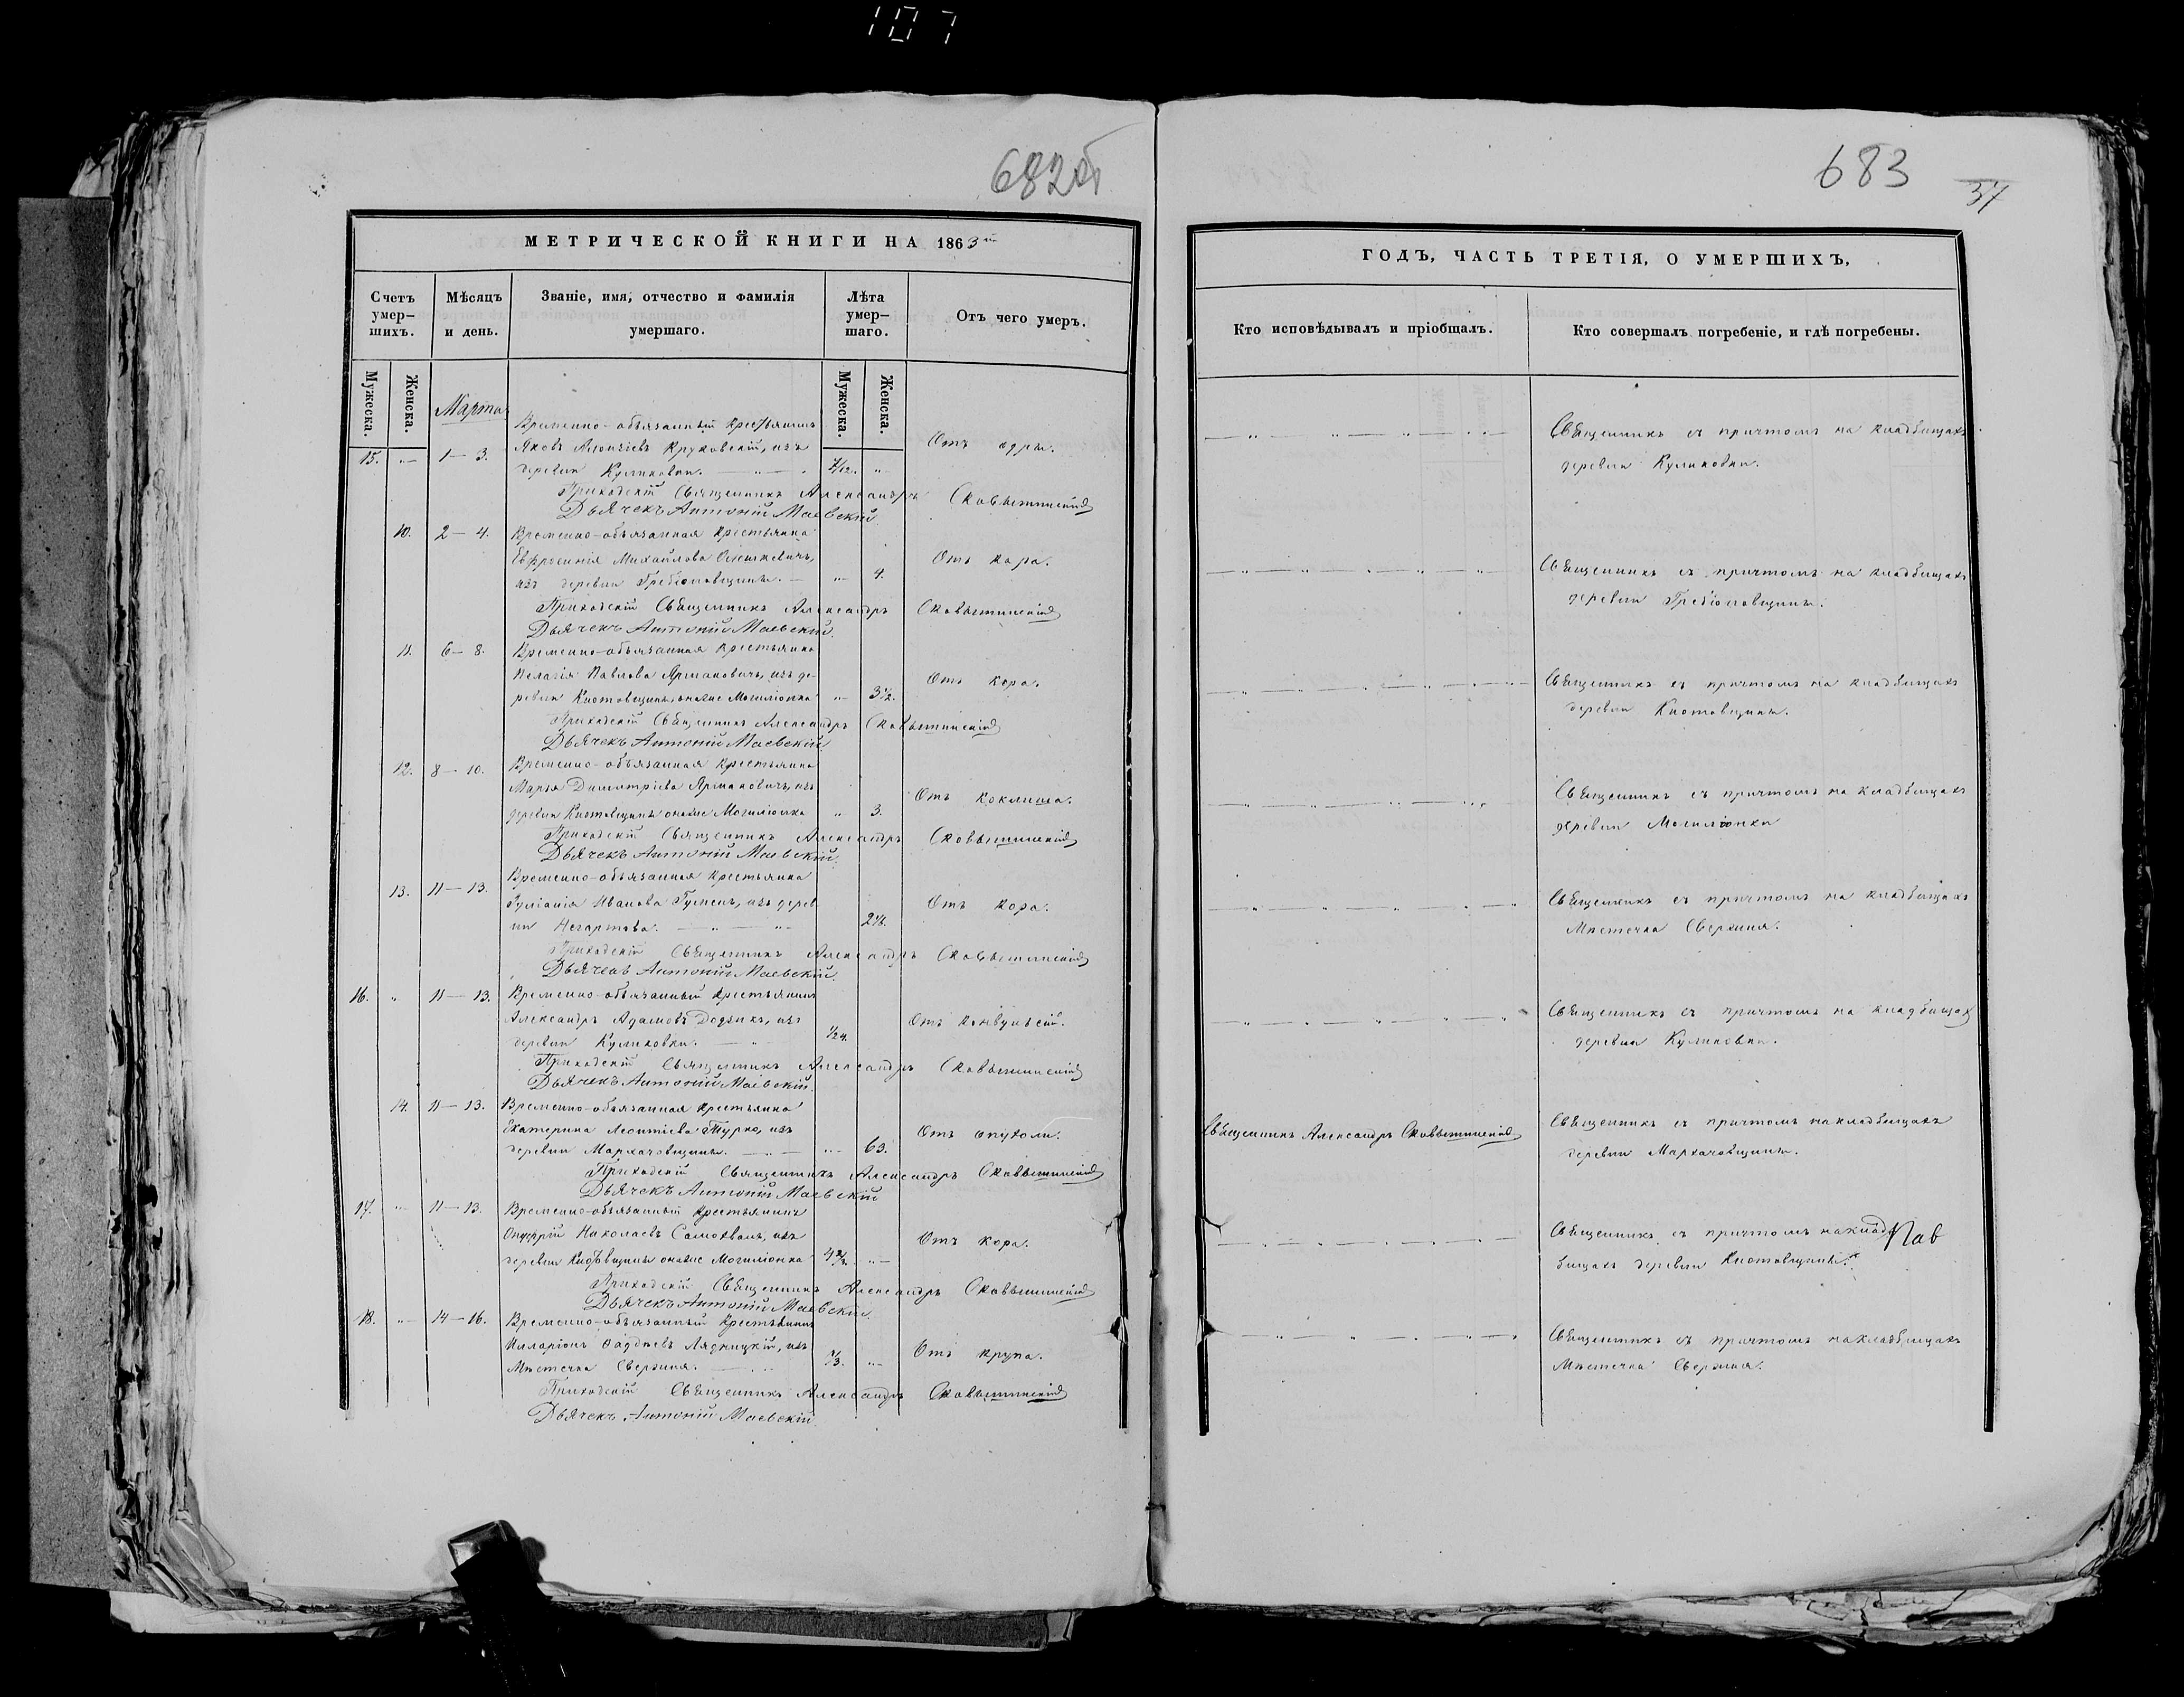 107
682об
МЕТРИЧЕСКОЙ КНИГИ НА 1863й
Счетъ умер-шихъ.
Мѣсяцъ и день.
Званіе, имя, отчество и фамилія умершаго.
Лѣта умер-шаго.
Отъ чего умеръ.
Мужеска.
Женска.
Мужеска.
Женска.
Марта
Временно-обязанный крестьянинъ
Яковъ Круковскій, изъ
15. "— 1—3. деревни Куликовки. —"— 7/12. "— Отъ одры.
Приходскій Священникъ Александръ Сковышинскій
Дьячекъ Антоній Маевскій.
10. 2—4. Временно-обязанная крестьянка
Евфросинія Михайлова Олешкевичъ, Отъ кора.
изъ деревни — "— 4.
Приходскій Священникъ Александръ Сковышинскій
Дьячекъ Антоній Маевскій.
11. 6—8. Временно-обязанная крестьянка
Пелагія Павлова Ярмаковичъ, изъ де- Отъ кора.
ревни Киотовщины, онаже Могилюнка "— 3½.
Приходскій Священникъ Александръ Сковышинскій
Дьячекъ Антоній Маевскій
12. 8—10. Временно-обязанная крестьянка
Марья Димитріева Ярмаковичъ, изъ Отъ коклюша.
деревни Киотовщины онаже Могилюнка " 3.
Приходскій Священникъ Александръ Сковышинскій
Дьячекъ Антоній Маевскій.
13. 11—13. Временно-обязанная крестьянка
Іуліанія Иванова Гуменъ, изъ дерев Отъ кора.
ни Негартова. —"—"—
Приходскій Священникъ Александръ Сковышинскій
Дьячекъ Антоній Маевскій.
16. " 11—13. Временно-обязанный крестьянинъ
Александръ Адамовъ Додзикъ, изъ Отъ конвульсій.
деревни Куликовки. —"— 1/24.
Приходскій Священникъ Александръ Сковышинскій
Дьячекъ Антоній Маевскій.
14. 11—13. Временно-обязанная крестьянка
Екатерина Леонтіева Турко, изъ Отъ опухоли.
деревни Мархачовщины. —"— "— 63.
Приходскій Священникъ Александръ Сковышинскій
Дьячекъ Антоній Маевскій
17. "— 11—13. Временно-обязанный крестьянинъ
Онуфрій Николаевъ Самохвалъ, изъ Отъ кора.
деревни Киотовщины онаже Могилюнка "—
Приходскій Священникъ Александръ Сковышинскій
Дьячекъ Антоній Маевскій.
18. "— 14—16. Временно-обязанный крестьянинъ
Иларіонъ Фаддеевъ Лядницкій, изъ Отъ крупа.
Мѣстечка Свержня. — "—
Приходскій Священникъ Александръ Сковышинскій
Дьячекъ Антоній Маевскій
683
37
ГОДЪ, ЧАСТЬ ТРЕТІЯ, О УМЕРШИХЪ,
Кто исповѣдывалъ и пріобщалъ.
Кто совершалъ погребеніе, и гдѣ погребены.
Священникъ съ причтомъ на кладбищахъ
деревни Куликовки.
Священникъ съ причтомъ на кладбищахъ
деревни
Священникъ съ причтомъ на кладбищахъ
деревни Киотовщины.
Священникъ съ причтомъ на кладбищахъ
деревни Могилюнки
Священникъ съ причтомъ на кладбищахъ
Мѣстечка Свержня.
Священникъ съ причтомъ на кладбищахъ
деревни Куликовки.
Священникъ Александръ Сковышинскій Священникъ съ причтомъ на кладбищахъ
деревни Мархачовщины.
Священникъ съ причтомъ на клад
бищахъ деревни Киотовщины.
Священникъ съ причтомъ на кладбищахъ
Мѣстечка Свержня.